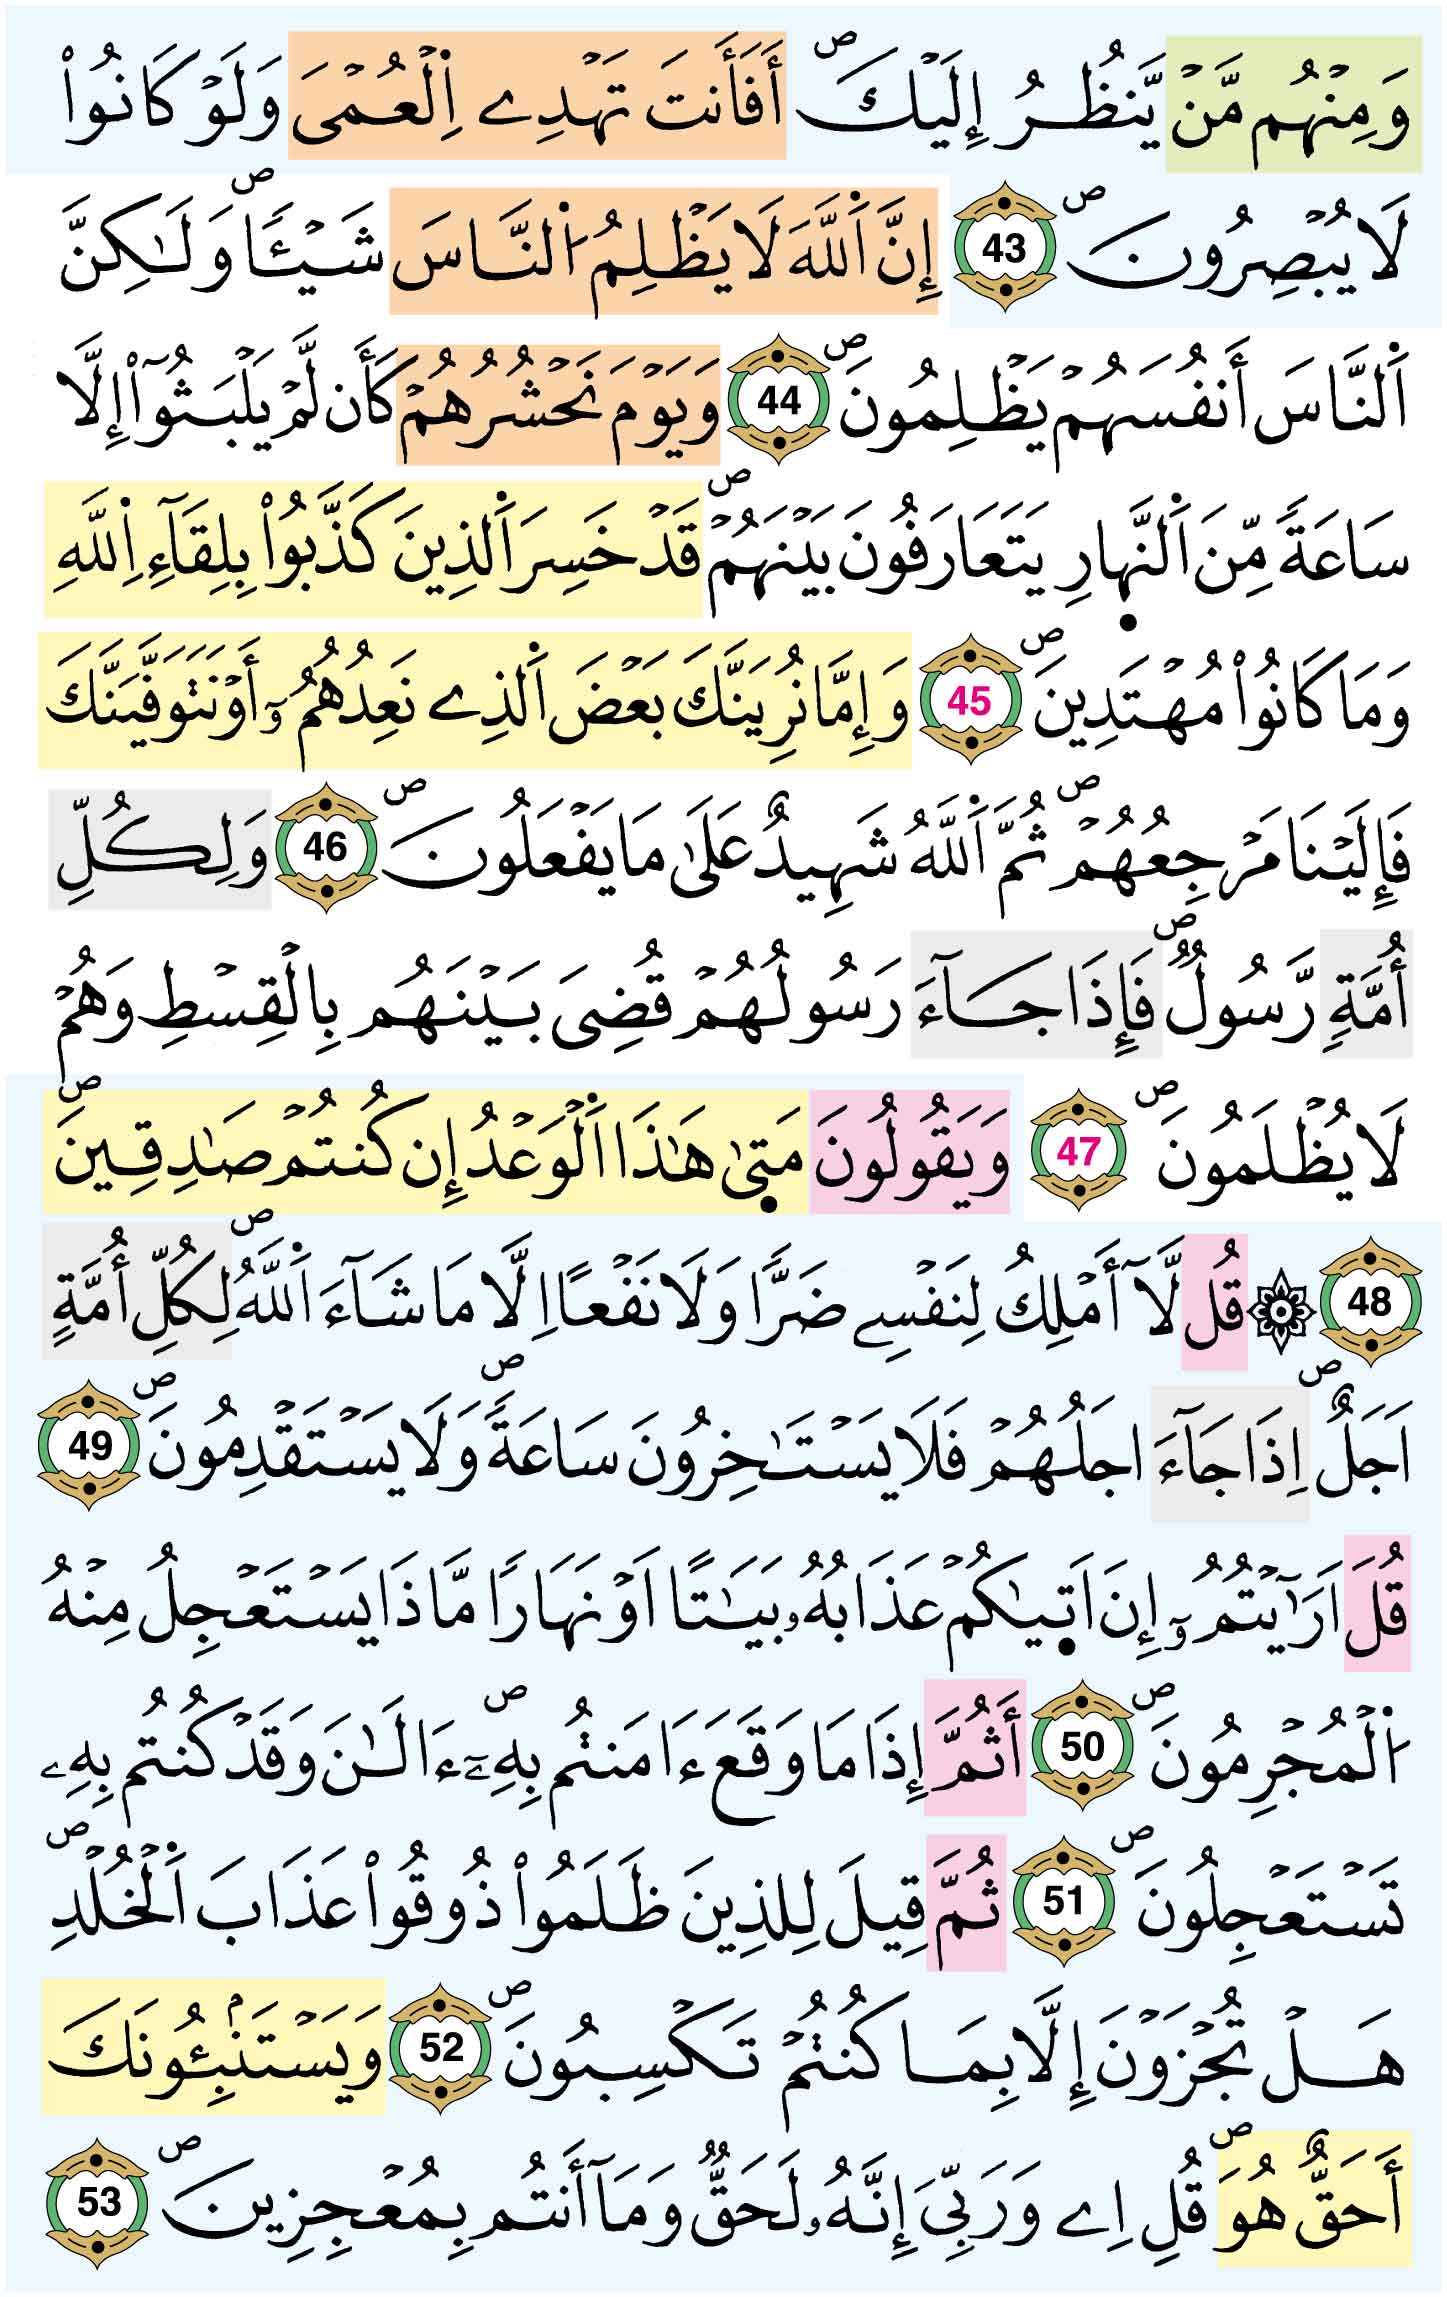 وَمِنْهُم مَّنْ يَّنظُرُ إِلَيْكَۖ أَفَأَنتَ تَهْدِے اِ۬لْعُمْيَ وَلَوْ كَانُواْ
لَا يُبْصِرُونَۖ 43 إِنَّ اَ۬للَّهَ لَا يَظْلِمُ اُ۬لنَّاسَ شَيْـٔاٗۖ وَلَٰكِنَّ
اَ۬لنَّاسَ أَنفُسَهُمْ يَظْلِمُونَۖ 44 وَيَوْمَ نَحْشُرُهُمْ كَأَن لَّمْ يَلْبَثُوٓاْ إِلَّا
سَاعَةٗ مِّنَ اَ۬لنَّهارِ يَتَعَارَفُونَ بَيْنَهُمْۖ قَدْ خَسِرَ اَ۬لذِينَ كَذَّبُواْ بِلِقَآءِ اِ۬للَّهِ
وَمَا كَانُواْ مُهْتَدِينَۖ 45 وَإِمَّا نُرِيَنَّكَ بَعْضَ اَ۬لذِے نَعِدُهُمُۥٓ أَوْ نَتَوَفَّيَنَّكَ
فَإِلَيْنَا مَرْجِعُهُمْۖ ثُمَّ اَ۬للَّهُ شَهِيدٌ عَلَىٰ مَا يَفْعَلُونَۖ 46 وَلِكُلِّ
أُمَّةٖ رَّسُولٞۖ فَإِذَا جَآءَ رَسُولُهُمْ قُضِيَ بَيْنَهُم بِالْقِسْطِ وَهُمْ
لَا يُظْلَمُونَۖ 47 وَيَقُولُونَ مَت۪ىٰ هَٰذَا اَ۬لْوَعْدُ إِن كُنتُمْ صَٰدِقِينَۖ
48 ۞ قُل لَّآ أَمْلِكُ لِنَفْسِے ضَرّٗا وَلَا نَفْعاً اِلَّا مَا شَآءَ اَ۬للَّهُۖ لِكُلِّ أُمَّةٍ
اَجَلٌۖ اِذَا جَآءَ اجَلُهُمْ فَلَا يَسْتَٰخِرُونَ سَاعَةٗۖ وَلَا يَسْتَقْدِمُونَۖ 49
قُلَ اَرَٰٓيْتُمُۥٓ إِنَ اَت۪يٰكُمْ عَذَابُهُۥ بَيَٰتاً اَوْ نَهَاراٗ مَّاذَا يَسْتَعْجِلُ مِنْهُ
اُ۬لْمُجْرِمُونَۖ 50 أَثُمَّ إِذَا مَا وَقَعَ ءَامَنتُم بِهِۦٓۖ ءَالَٰنَ وَقَدْ كُنتُم بِهِۦ
تَسْتَعْجِلُونَۖ 51 ثُمَّ قِيلَ لِلذِينَ ظَلَمُواْ ذُوقُواْ عَذَابَ اَ۬لْخُلْدِۖ
هَلْ تُجْزَوْنَ إِلَّا بِمَا كُنتُمْ تَكْسِبُونَۖ 52 وَيَسْتَنۢبِـُٔونَكَ
أَحَقٌّ هُوَۖ قُلِ اِے وَرَبِّيَ إِنَّهُۥ لَحَقّٞ وَمَآ أَنتُم بِمُعْجِزِينَۖ 53